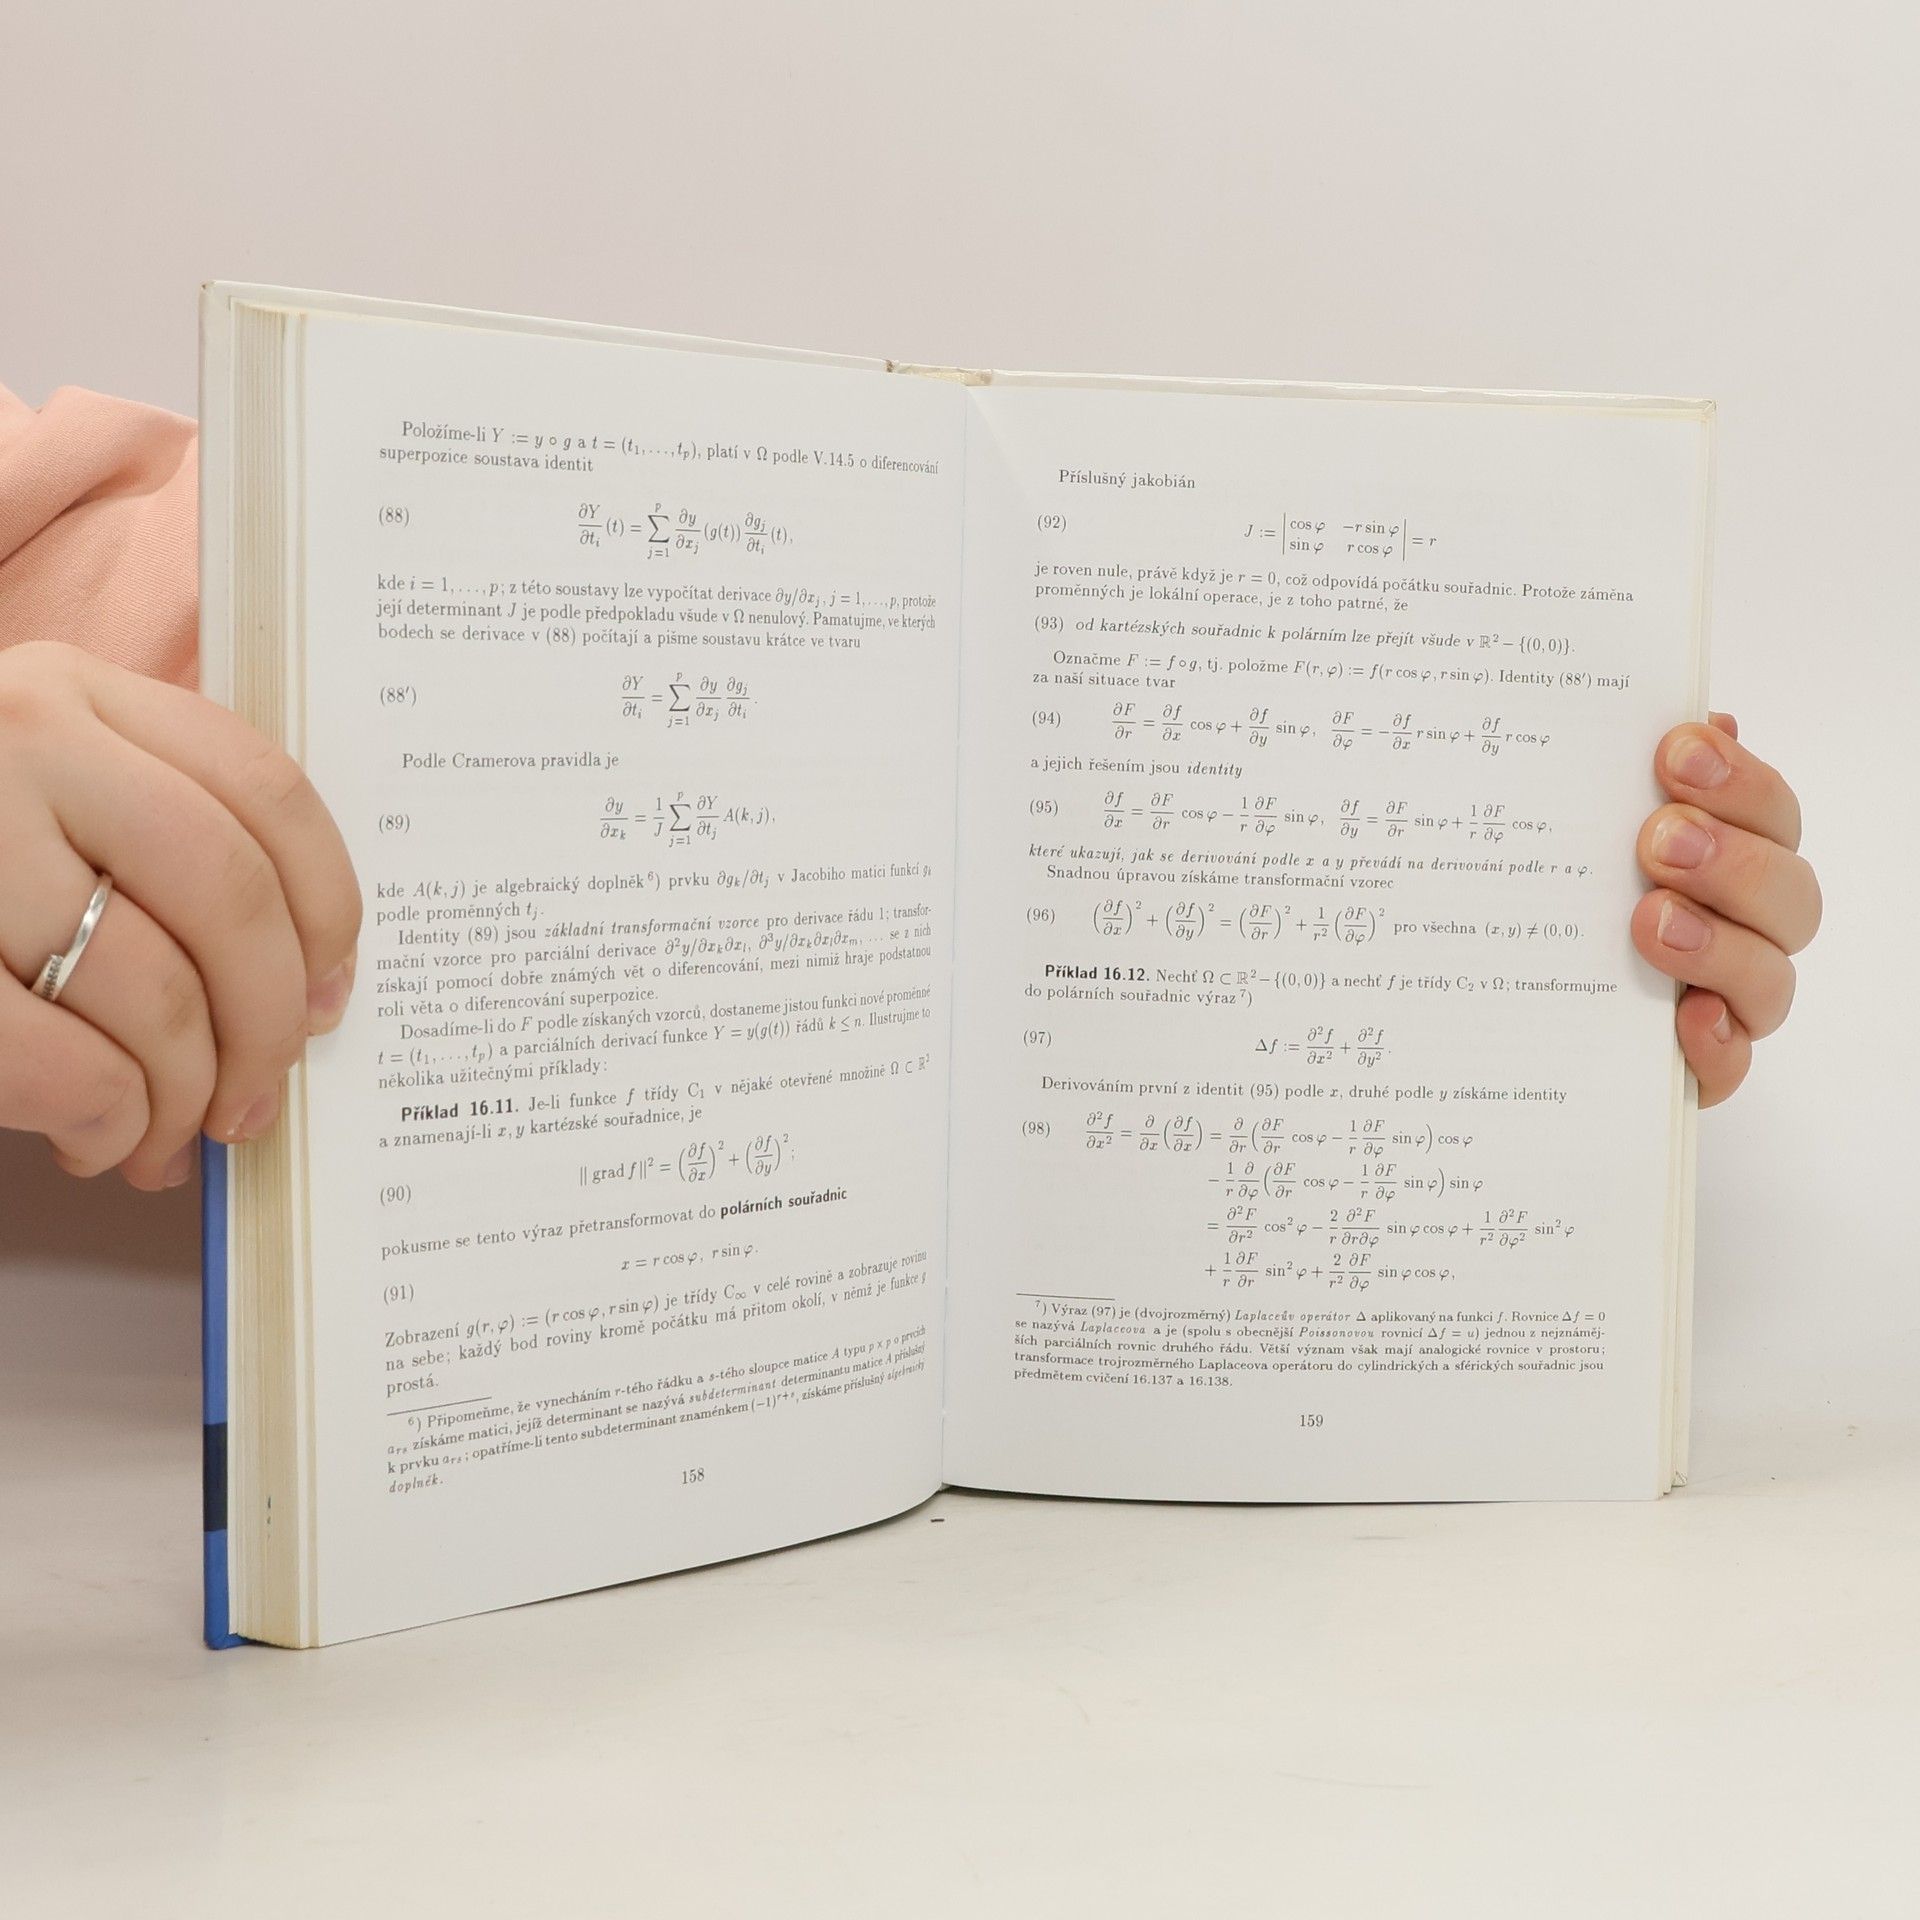 Položíme-li Y := y ∘ g a t = (t₁, . . . , tₚ), platí v Ω podle V.14.5 o diferencování
superpozice soustava identit
(88) ∂Y/∂tᵢ (t) = ∑ⱼ₌₁ᵖ ∂y/∂xⱼ (g(t)) ∂gⱼ/∂tᵢ (t),
kde i = 1, . . . , p; z této soustavy lze vypočítat derivace ∂y/∂xⱼ, j = 1, . . . , p, protože
její determinant J je podle předpokladu všude v Ω nenulový. Pamatujme, ve kterých
bodech se derivace v (88) počítají a pišme soustavu krátce ve tvaru
(88′) ∂Y/∂tᵢ = ∑ⱼ₌₁ᵖ ∂y/∂xⱼ ∂gⱼ/∂tᵢ .
Podle Cramerova pravidla je
(89) ∂y/∂xₖ = 1/J ∑ⱼ₌₁ᵖ ∂Y/∂tⱼ A(k, j),
kde A(k, j) je algebraický doplněk ⁶) prvku ∂gₖ/∂tⱼ v Jacobiho matici funkcí gₖ
podle proměnných tⱼ.
Identity (89) jsou základní transformační vzorce pro derivace řádu 1; transfor-
mační vzorce pro parciální derivace ∂²y/∂xₖ∂xₗ, ∂³y/∂xₖ∂xₗ∂xₘ, . . . se z nich
získají pomocí dobře známých vět o diferencování, mezi nimiž hraje podstatnou
roli věta o diferencování superpozice.
Dosadíme-li do F podle získaných vzorců, dostaneme jistou funkci nové proměnné
t = (t₁, . . . , tₚ) a parciálních derivací funkce Y = y(g(t)) řádů k ≤ n. Ilustrujme to
několika užitečnými příklady:
Příklad 16.11. Je-li funkce f třídy C₁ v nějaké otevřené množině Ω ⊂ ℝ²
a znamenají-li x, y kartézské souřadnice, je
(90) ‖ grad f‖² = (∂f/∂x)² + (∂f/∂y)²;
pokusme se tento výraz přetransformovat do polárních souřadnic
(91) x = r cos φ, r sin φ.
Zobrazení g(r, φ) := (r cos φ, r sin φ) je třídy C∞ v celé rovině a zobrazuje rovinu
na sebe; každý bod roviny kromě počátku má přitom okolí, v němž je funkce g
prostá.
⁶) Připomeňme, že vynecháním r-tého řádku a s-tého sloupce matice A typu p × p o prvcích
aᵣₛ získáme matici, jejíž determinant se nazývá subdeterminant determinantu matice A příslušný
k prvku aᵣₛ; opatříme-li tento subdeterminant znaménkem (−1)ʳ⁺ˢ, získáme příslušný algebraický
doplněk.
158
Příslušný jakobián
(92) J := | cos φ −r sin φ ; sin φ r cos φ | = r
je roven nule, právě když je r = 0, což odpovídá počátku souřadnic. Protože záměna
proměnných je lokální operace, je z toho patrné, že
(93) od kartézských souřadnic k polárním lze přejít všude v ℝ² − {(0, 0)}.
Označme F := f ∘ g, tj. položme F(r, φ) := f(r cos φ, r sin φ). Identity (88′) mají
za naší situace tvar
(94) ∂F/∂r = ∂f/∂x cos φ + ∂f/∂y sin φ, ∂F/∂φ = −∂f/∂x r sin φ + ∂f/∂y r cos φ
a jejich řešením jsou identity
(95) ∂f/∂x = ∂F/∂r cos φ − 1/r ∂F/∂φ sin φ, ∂f/∂y = ∂F/∂r sin φ + 1/r ∂F/∂φ cos φ,
které ukazují, jak se derivování podle x a y převádí na derivování podle r a φ.
Snadnou úpravou získáme transformační vzorec
(96) (∂f/∂x)² + (∂f/∂y)² = (∂F/∂r)² + 1/r² (∂F/∂φ)² pro všechna (x, y) ≠ (0, 0).
Příklad 16.12. Nechť Ω ⊂ ℝ² − {(0, 0)} a nechť f je třídy C₂ v Ω; transformujme
do polárních souřadnic výraz ⁷)
(97) Δf := ∂²f/∂x² + ∂²f/∂y² .
Derivováním první z identit (95) podle x, druhé podle y získáme identity
(98) ∂²f/∂x² = ∂/∂x (∂f/∂x) = ∂/∂r (∂F/∂r cos φ − 1/r ∂F/∂φ sin φ) cos φ
− 1/r ∂/∂φ (∂F/∂r cos φ − 1/r ∂F/∂φ sin φ) sin φ
= ∂²F/∂r² cos² φ − 2/r ∂²F/∂r∂φ sin φ cos φ + 1/r² ∂²F/∂φ² sin² φ
+ 1/r ∂F/∂r sin² φ + 2/r² ∂F/∂φ sin φ cos φ,
⁷) Výraz (97) je (dvojrozměrný) Laplaceův operátor Δ aplikovaný na funkci f. Rovnice Δf = 0
se nazývá Laplaceova a je (spolu s obecnější Poissonovou rovnicí Δf = u) jednou z nejznáměj-
ších parciálních rovnic druhého řádu. Větší význam však mají analogické rovnice v prostoru;
transformace trojrozměrného Laplaceova operátoru do cylindrických a sférických souřadnic jsou
předmětem cvičení 16.137 a 16.138.
159